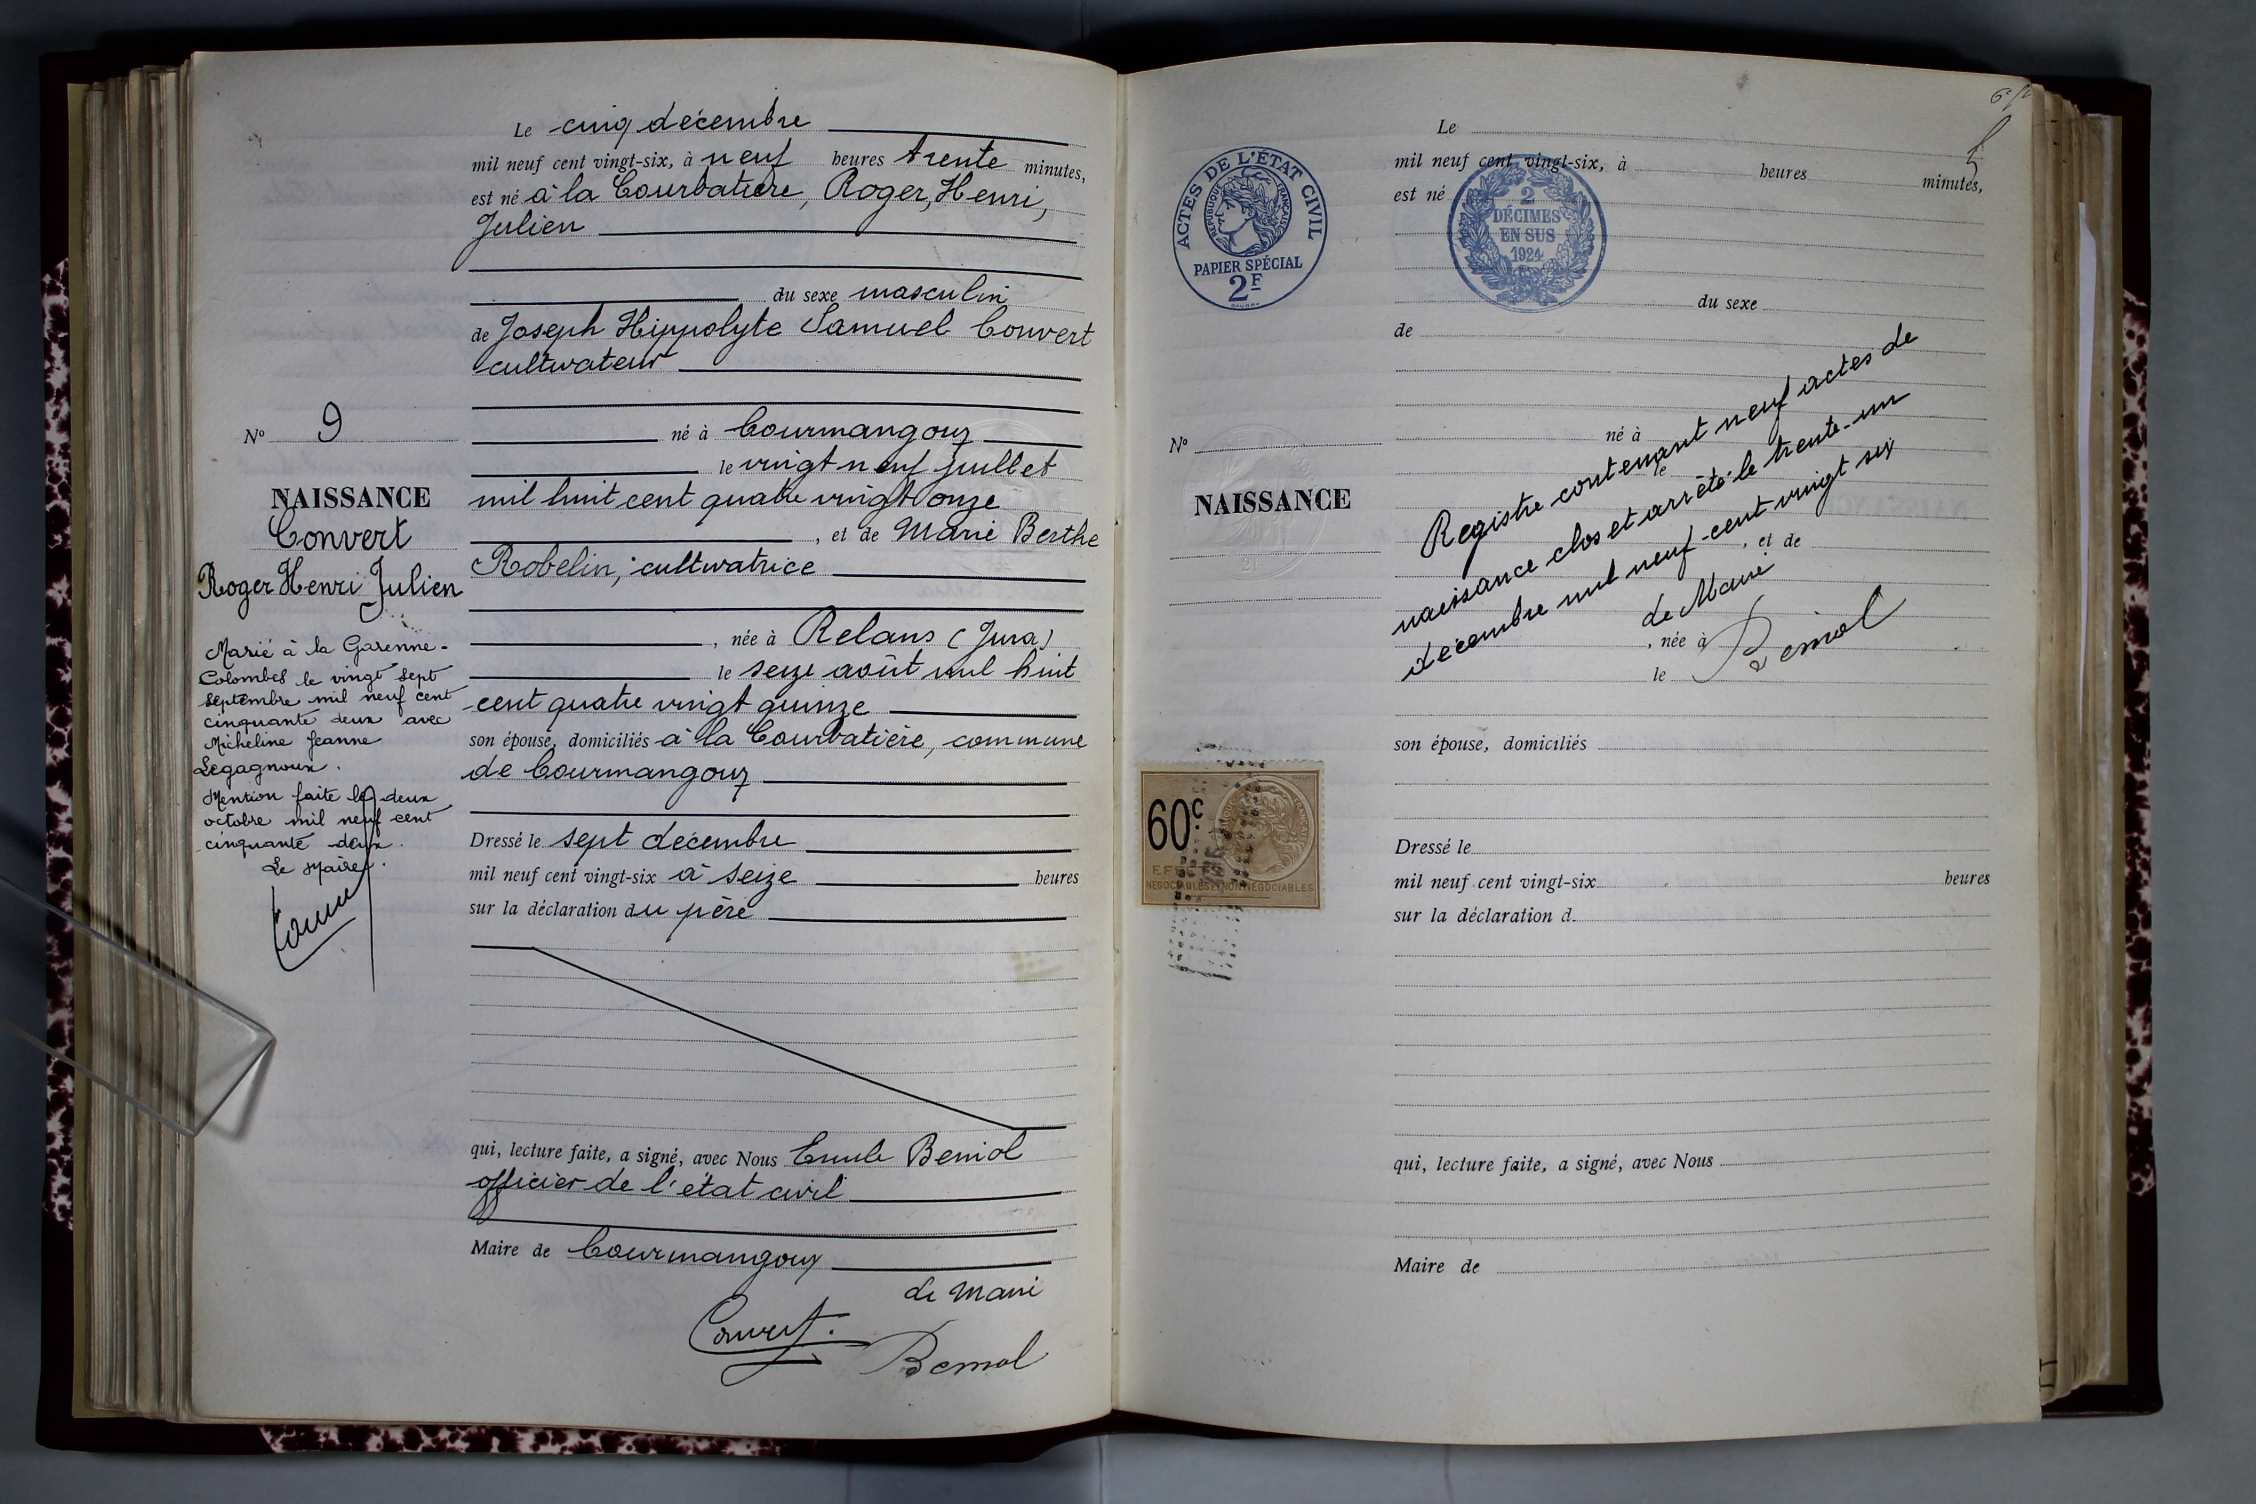 Le cinq décembre
mil neuf cent vingt-six, à neuf heures trente minutes,
est né à la Courbatière, Roger, Henri,
Julien
du sexe masculin
de Joseph Hippolyte Samuel Convert
cultivateur
né à Courmangoux
le vingt neuf juillet
mil huit cent quatre vingt onze
, et de Marie Berthe
Robelin, cultivatrice
, née à Relans (Jura)
le seize août mil huit
cent quatre vingt quinze
son épouse, domiciliés à la Courbatière, commune
de Courmangoux
Dressé le sept décembre
mil neuf cent vingt-six à seize heures
sur la déclaration du père
qui, lecture faite, a signé, avec Nous Emile Beniol
officier de l'état civil
Maire de Courmangoux
Le Maire
Convert.
Beniol
N° 9
NAISSANCE
Convert
Roger Henri Julien
Marié à la Garenne-
Colombes le vingt sept
septembre mil neuf cent
cinquante deux avec
Micheline Jeanne
Legagnoux.
Mention faite le deux
octobre mil neuf cent
cinquante deux.
Le Maire.
ACTES DE L'ÉTAT CIVIL
RÉPUBLIQUE FRANÇAISE
PAPIER SPÉCIAL
2F
2
DÉCIMES
EN SUS
1924
Le
mil neuf cent vingt-six, à heures minutes,
est né
du sexe
de
N°
NAISSANCE
né à
le
, et de
, née à
le
Registre contenant neuf actes de
naissance clos et arrêté le trente-un
décembre mil neuf-cent vingt six
Le Maire
Beniol
son épouse, domiciliés
60c
EFFETS
NÉGOCIABLES ET NON NÉGOCIABLES
Dressé le
mil neuf cent vingt-six heures
sur la déclaration d
qui, lecture faite, a signé, avec Nous
Maire de